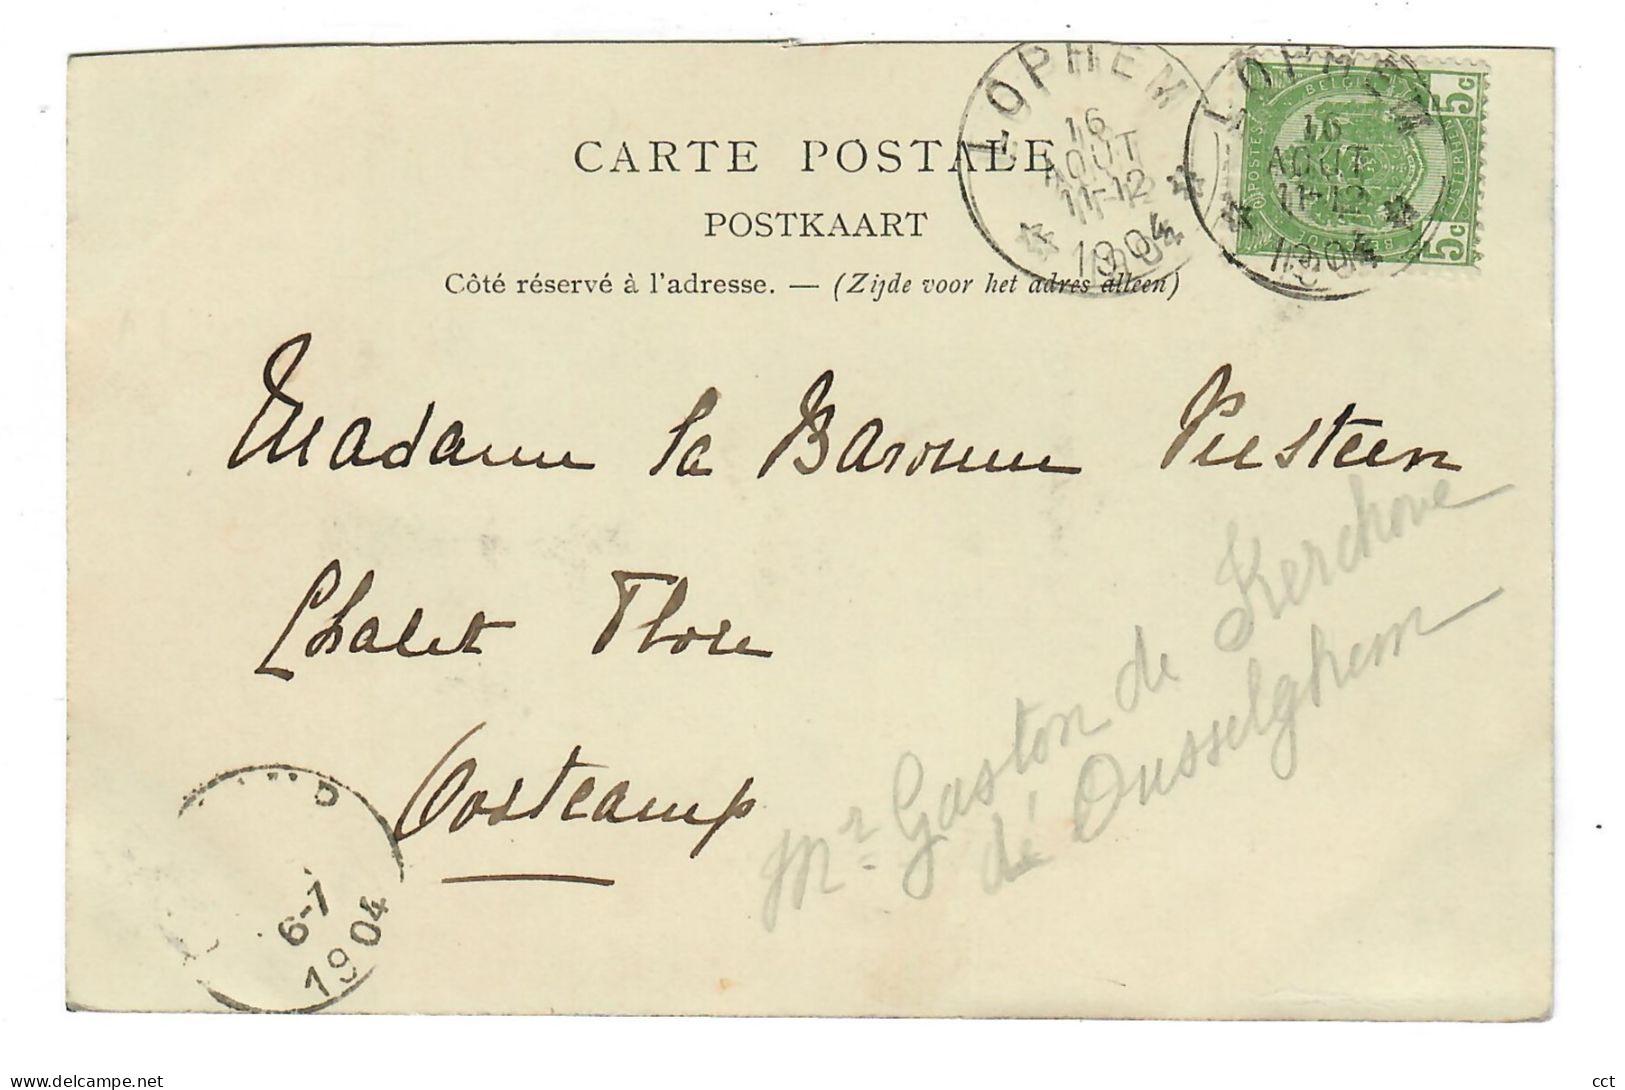 CARTE POSTALE
POSTKAART
Côté réservé à l'adresse. — (Zijde voor het adres alleen)
LOPHEM
16
AOUT
11-12
1904
LOPHEM
16
AOUT
11-12
1904
5c
BELGI
POSTES
5c
Madame la Baronne
Chalet Flore
Oostcamp
Mr Gaston de Kerchove
de Ousselghem
6-7
1904